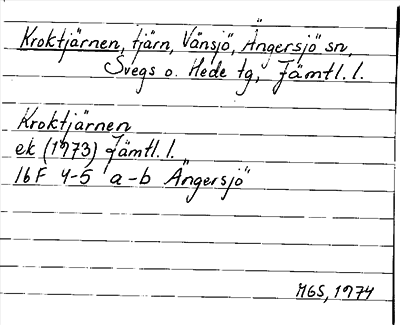 Kroktjärnen, tjärn, Vänsjö, Ängersjö sn,
Svegs o. Hede tg, Jämtl. l.
Kroktjärnen
ek (1973) Jämtl. l.
16F 4-5 a-b Ängersjö
MGS, 1974